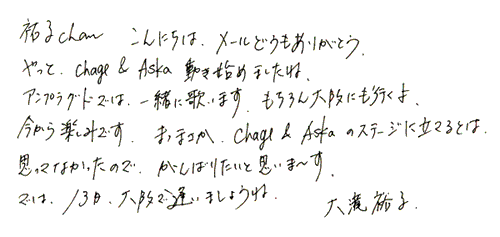 祐子chan こんにちは、メールどうもありがとう。
やっと、Chage & Aska 動き始めましたね。
アンプラグドでは、一緒に歌います。もちろん大阪にも行くよ。
今から楽しみです。まさか、Chage & Aska のステージに立てるとは、
思ってなかったので、がんばりたいと思いま〜す。
では、13日、大阪で逢いましょうね。
大滝裕子.